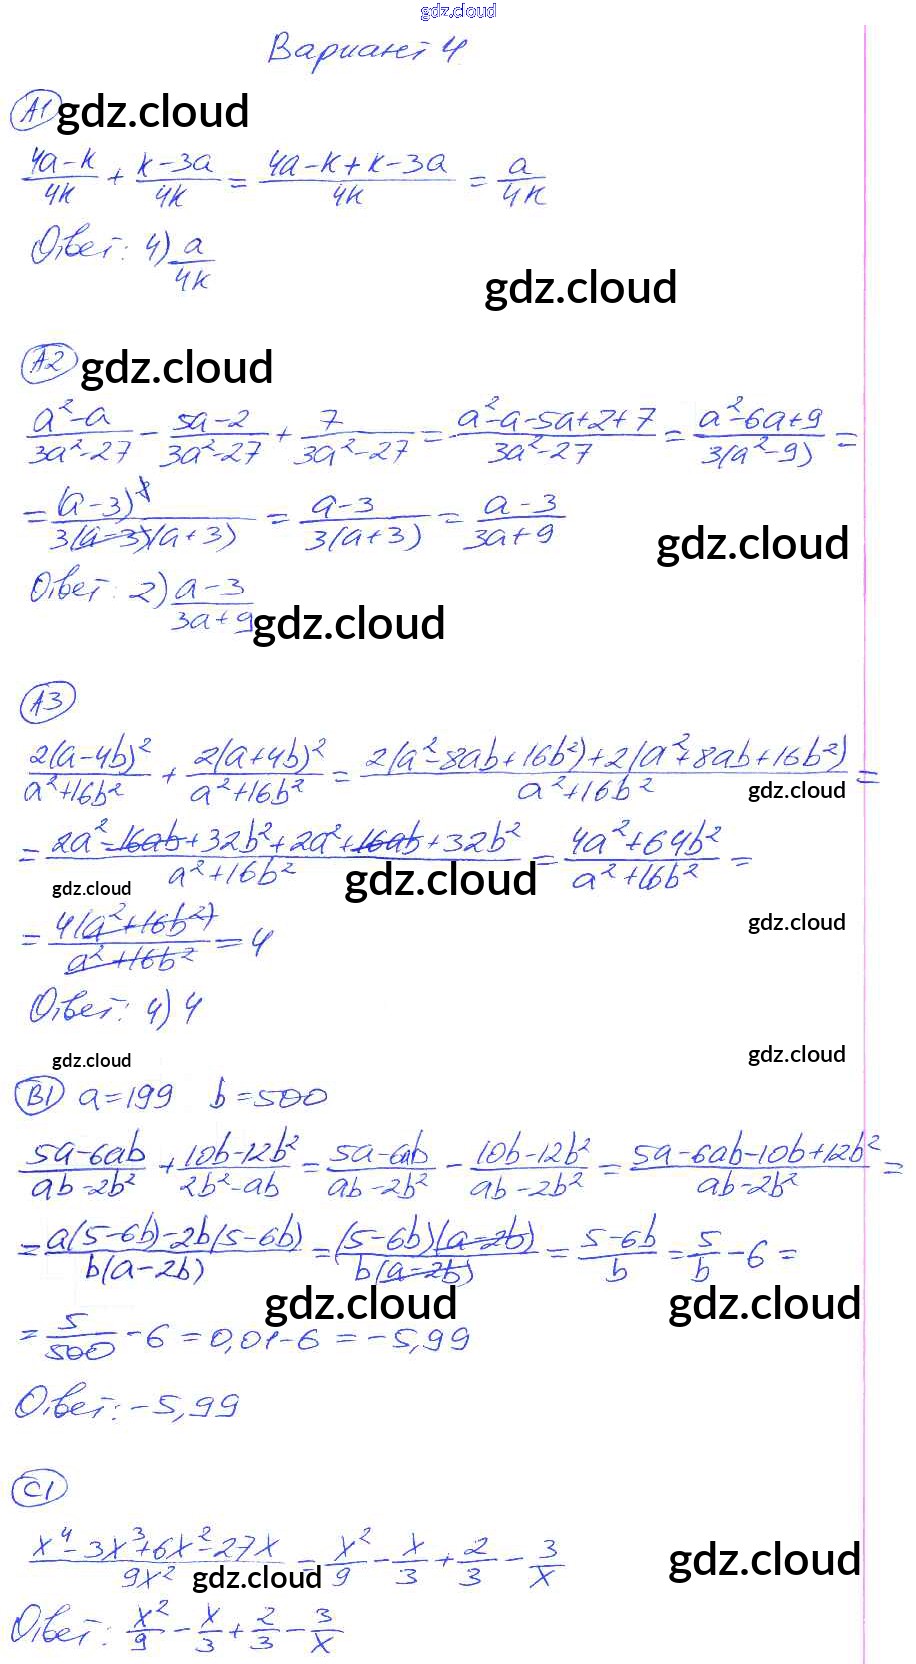 gdz.cloud
Вариант 4
А1 gdz.cloud
(4a-к)/4к + (к-3a)/4к = (4a-к+к-3a)/4к = a/4к
Ответ: 4) a/4к
gdz.cloud
А2 gdz.cloud
(a²-a)/(3a²-27) - (5a-2)/(3a²-27) + 7/(3a²-27) = (a²-a-5a+2+7)/(3a²-27) = (a²-6a+9)/(3(a²-9)) =
= (a-3)²/(3(a-3)(a+3)) = (a-3)/(3(a+3)) = (a-3)/(3a+9)
gdz.cloud
Ответ: 2) (a-3)/(3a+9)
gdz.cloud
А3
2(a-4b)²/(a²+16b²) + 2(a+4b)²/(a²+16b²) = (2(a²-8ab+16b²)+2(a²+8ab+16b²))/(a²+16b²) =
gdz.cloud
= (2a²-16ab+32b²+2a²+16ab+32b²)/(a²+16b²) = (4a²+64b²)/(a²+16b²) =
gdz.cloud gdz.cloud
gdz.cloud
= 4(a²+16b²)/(a²+16b²) = 4
Ответ: 4) 4
gdz.cloud gdz.cloud
В1 a=199 b=500
(5a-6ab)/(ab-2b²) + (10b-12b²)/(2b²-ab) = (5a-6ab)/(ab-2b²) - (10b-12b²)/(ab-2b²) = (5a-6ab-10b+12b²)/(ab-2b²) =
= (a(5-6b)-2b(5-6b))/(b(a-2b)) = (5-6b)(a-2b)/(b(a-2b)) = (5-6b)/b = 5/b - 6 =
gdz.cloud gdz.cloud
= 5/500 - 6 = 0,01-6 = -5,99
Ответ: -5,99
С1
(x⁴-3x³+6x²-27x)/9x² = x²/9 - x/3 + 2/3 - 3/x
gdz.cloud gdz.cloud
Ответ: x²/9 - x/3 + 2/3 - 3/x